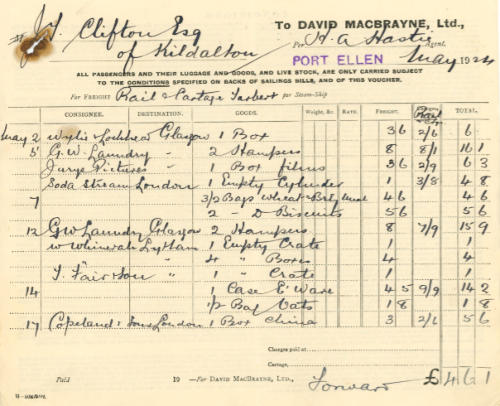 J. T. Clifton Esq
of Kildalton
To DAVID MACBRAYNE, Ltd.,
Per H. A. Hastie Agent.
PORT ELLEN May 1924
ALL PASSENGERS AND THEIR LUGGAGE AND GOODS, AND LIVE STOCK, ARE ONLY CARRIED SUBJECT
TO THE CONDITIONS SPECIFIED ON BACKS OF SAILINGS BILLS, AND OF THIS VOUCHER.
For FREIGHT Rail & Cartage Tarbert per Steam-Ship
CONSIGNEE. DESTINATION. GOODS. Weight, &c. RATE. FREIGHT. Rail TOTAL.
May 2 Wylie Lochhead Glasgow 1 Box 3 6 2/6 6
5 G.W. Laundry " 2 Hampers 8 8/1 16 1
Jurys Pictures " 1 Box films 3 6 2/9 6 3
Soda Stream London 1 Empty Cylinder 1 3/8 4 8
7 3/2 Bags Wheat & Brly meal 4 6 4 6
2 - D Biscuits 5 6 5 6
12 G.W. Laundry Glasgow 2 Hampers 8 7/9 15 9
W Whinerah Lytham 1 Empty Crate 1 1
" " 4 " Boxes 4 4
T. Fair & Son " 1 " Crate 1 1
14 1 Case E' Ware 4 5 9/9 14 2
1/2 Bag Oats 1 8 1 8
17 Copeland & Sons London 1 Box China 3 2/6 5 6
Changes paid at
Cartage,
Paid 19 —For DAVID MACBRAYNE, LTD., Forward £ 4 6 1